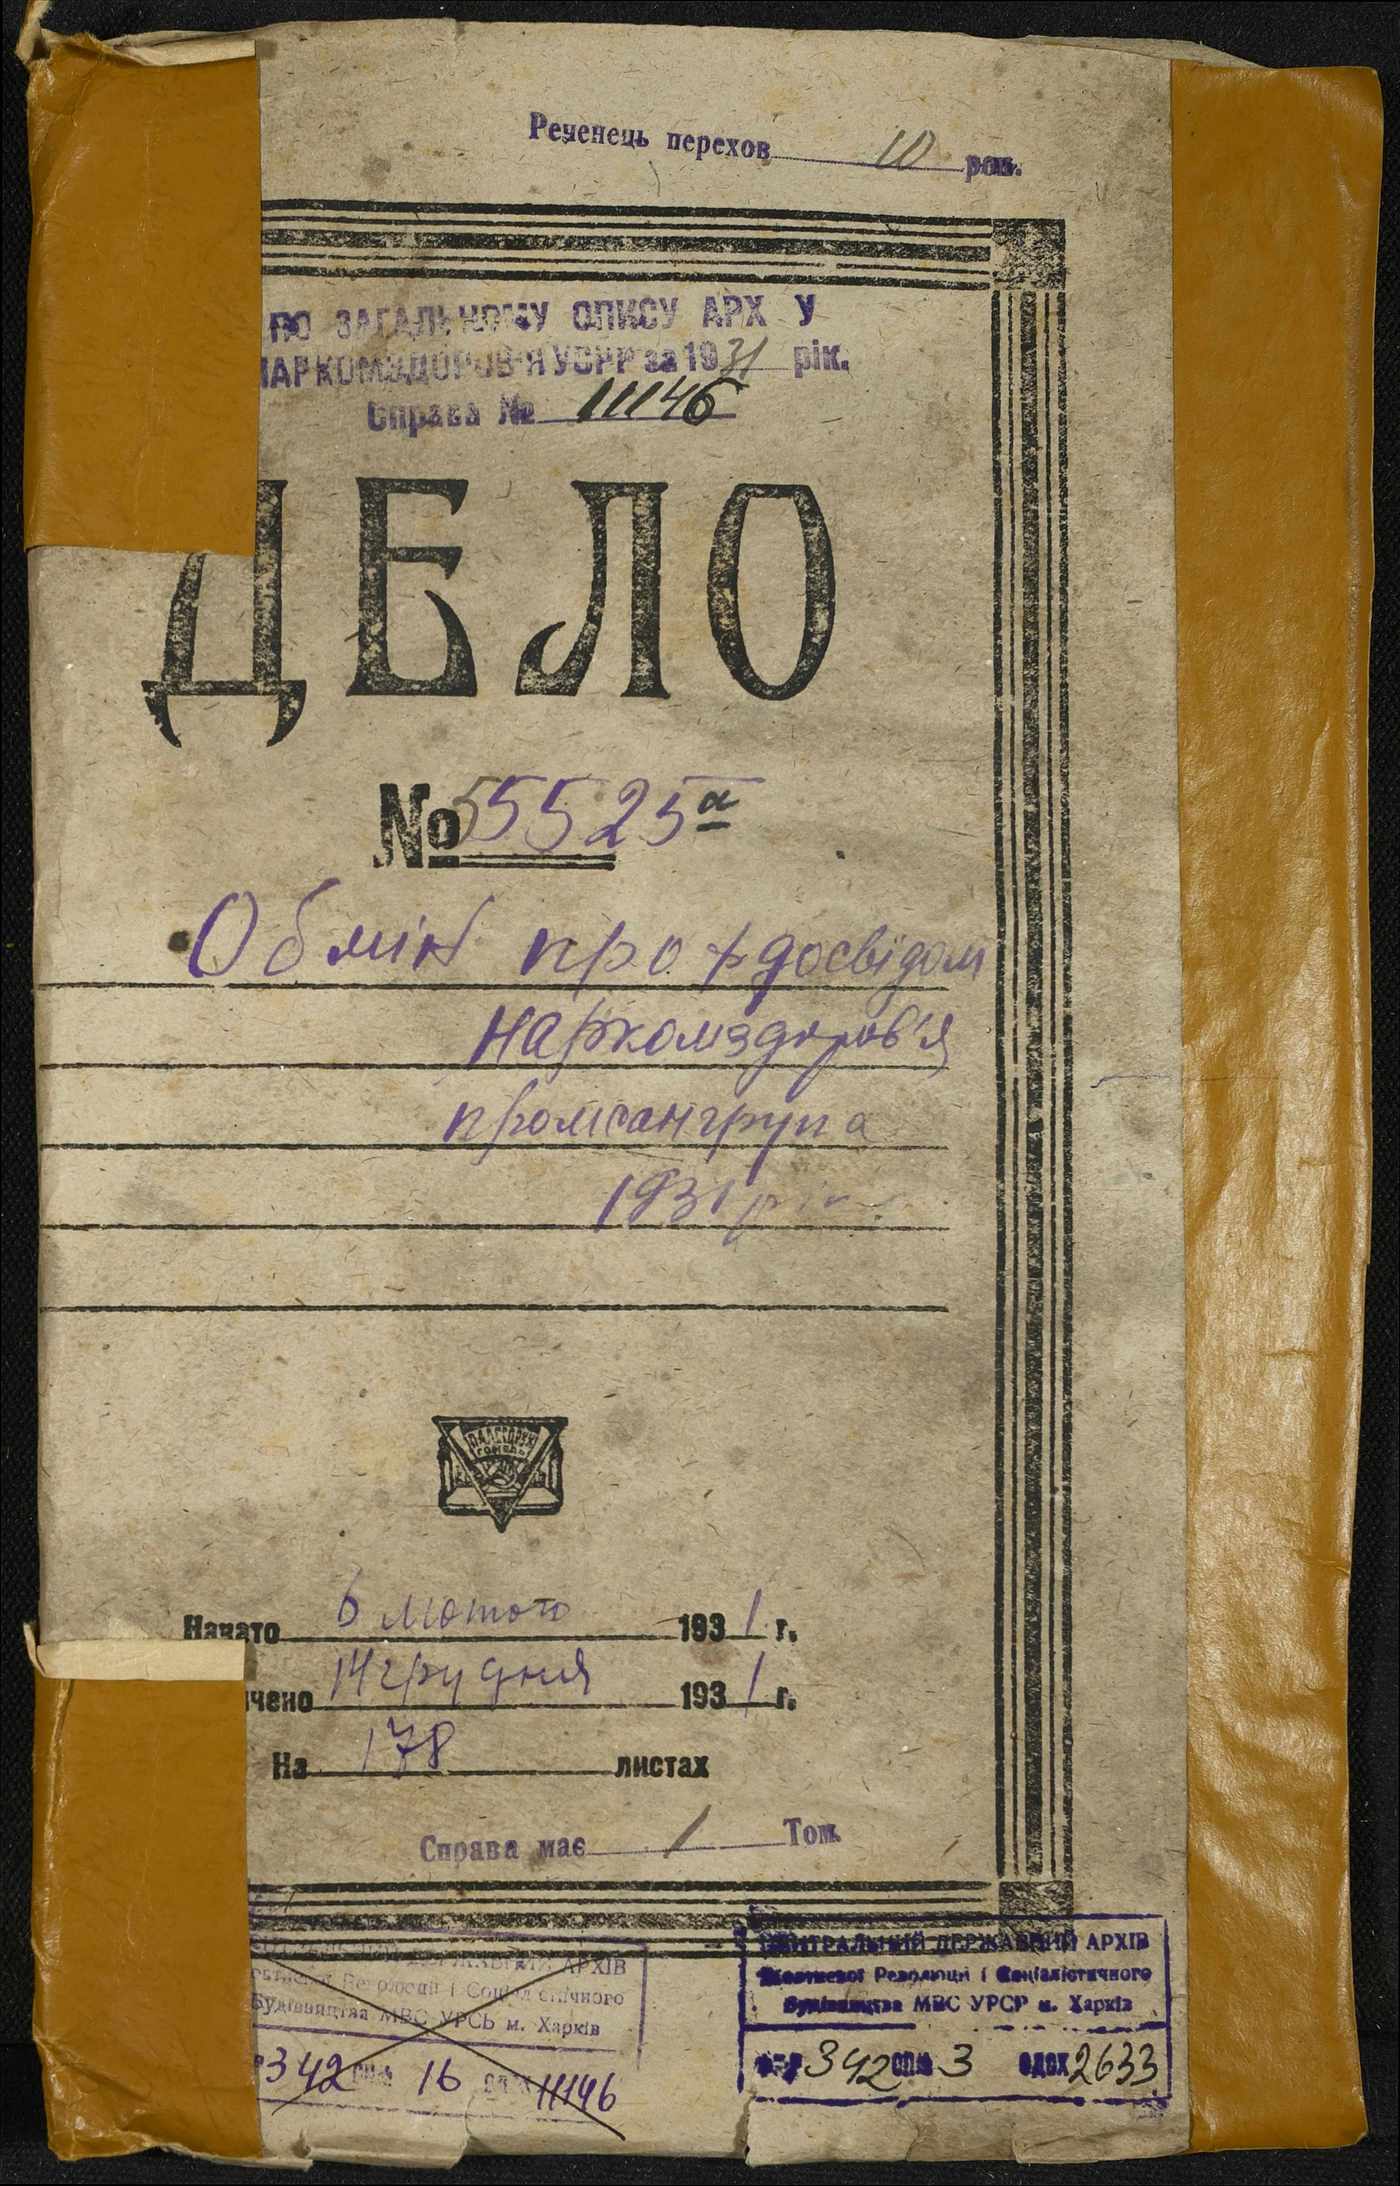 Реченець перехов 10 рок.
ПО ЗАГАЛЬНОМУ ОПИСУ АРХ У
НАРКОМЗДОРОВ'Я УСРР за 1931 рік.
Справа № 11146
ДЕЛО
№ 55525а
Обмін профдосвідом
наркомздоров'я
промсангрупа
1931 рік
Начато 6 лютого 1931 г.
чено 14 грудня 1931 г.
На 178 листах
Справа має 1 Том.
ДЕРЖАВНИЙ АРХІВ
Революції і Соціалістичного
Будівництва МВС УРСР м. Харків
342 16 11146
ЦЕНТРАЛЬНИЙ ДЕРЖАВНИЙ АРХІВ
Жовтневої Революції і Соціалістичного
Будівництва МВС УРСР м. Харків
342 оп. 3 од.зх 2633